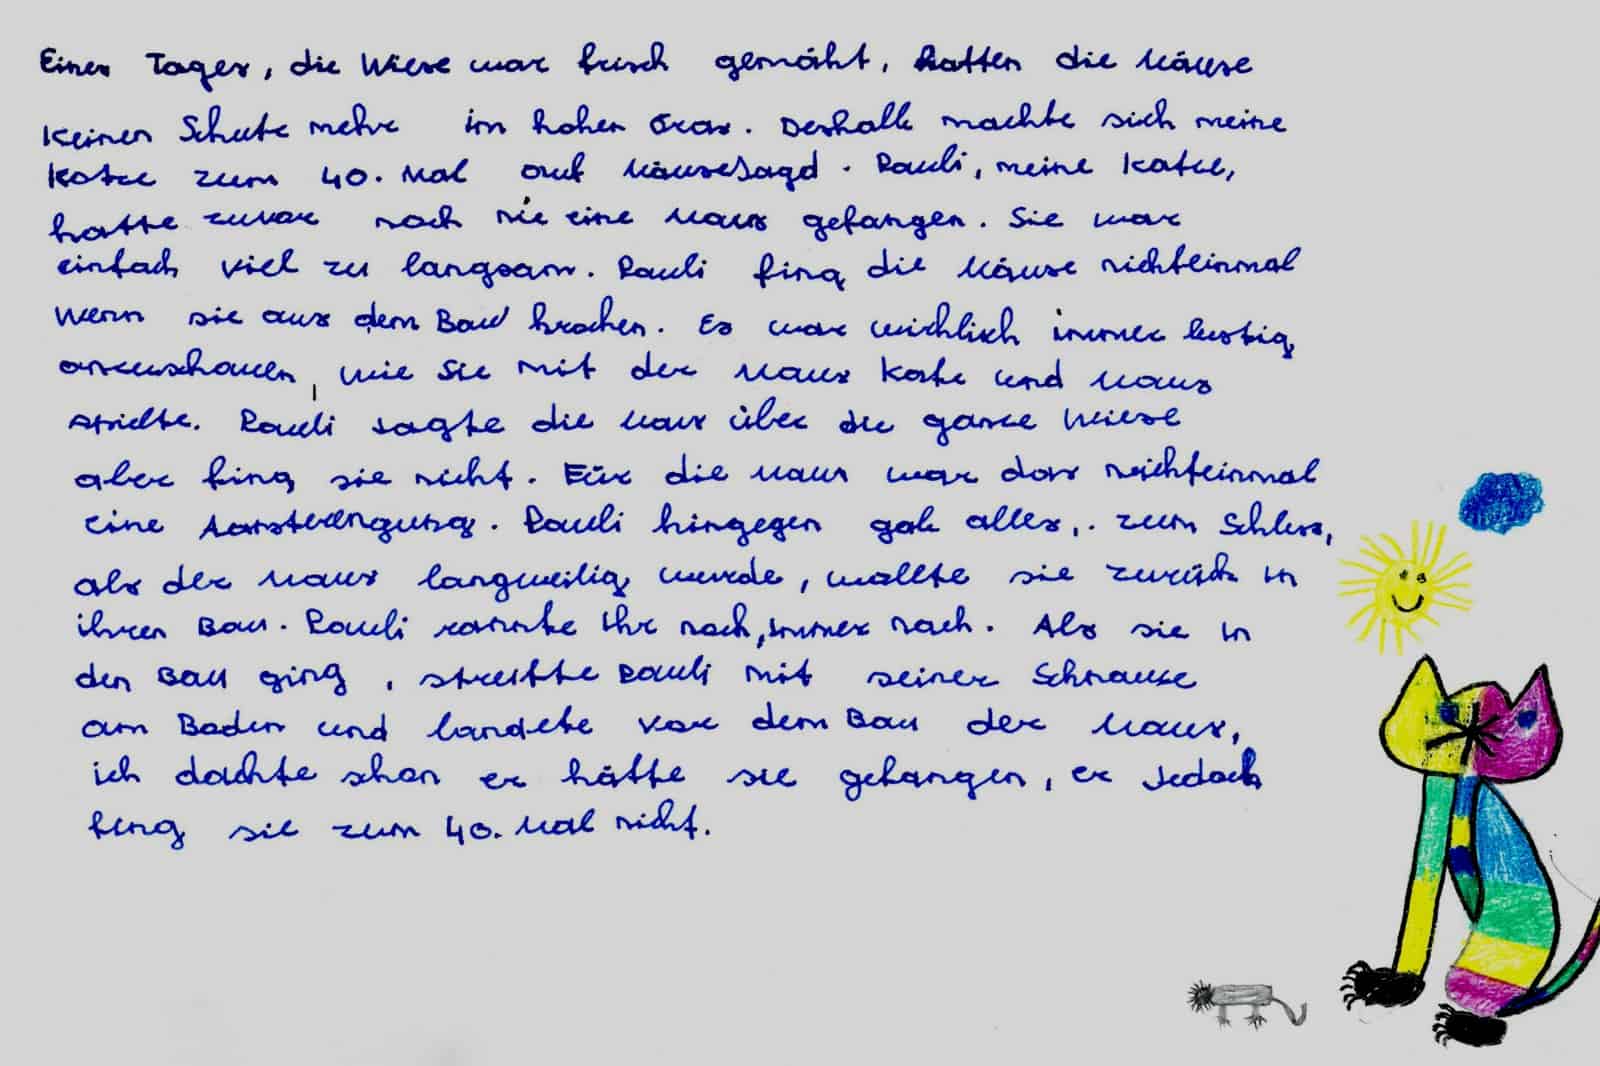 Eines Tages, die Wiese war frisch gemäht, hatten die Mäuse
keinen Schutz mehr im hohen Gras. Deshalb machte sich meine
Katze zum 40. Mal auf Mäusejagd. Pauli, meine Katze,
hatte zuvor noch nie eine Maus gefangen. Sie war
einfach viel zu langsam. Pauli fing die Mäuse nichteinmal
wenn sie aus dem Bau krochen. Es war wirklich immer lustig
anzuschauen, wie sie mit der Maus Katz und Maus
spielte. Pauli jagte die Maus über die ganze Wiese
aber fing sie nicht. Für die Maus war das nichteinmal
eine Anstrengung. Pauli hingegen gab alles,. zum Schluss,
als der Maus langweilig wurde, wollte sie zurück in
ihren Bau. Pauli rannte ihr nach, immer nach. Als sie in
den Bau ging, streifte Pauli mit seiner Schnauze
am Boden und landete vor dem Bau der Maus,
ich dachte schon er hätte sie gefangen, er jedoch
fing sie zum 40. Mal nicht.